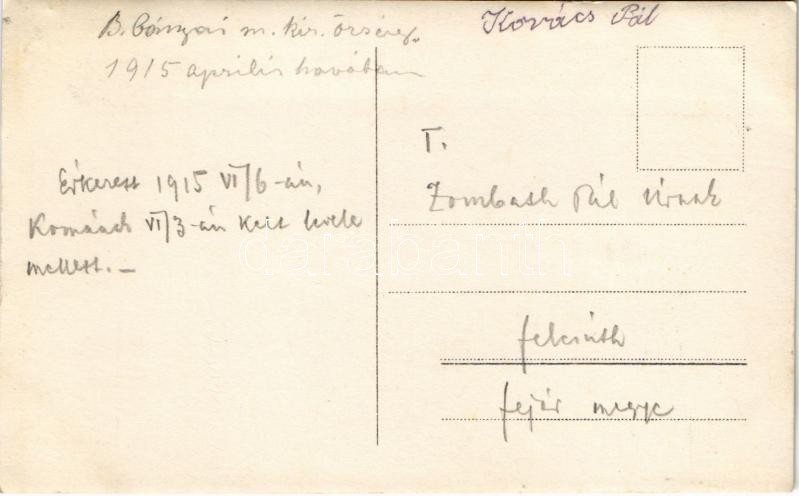 B. bányai m. kir. őrsereg.
1915 aprilis havában
Kovács Pál
Érkezett 1915 VI/6-án,
Komáách VI/3-án kelt levele
mellett. –
T.
Zombath Pál Úrnak
felcsúth
fejér megye
darabanth